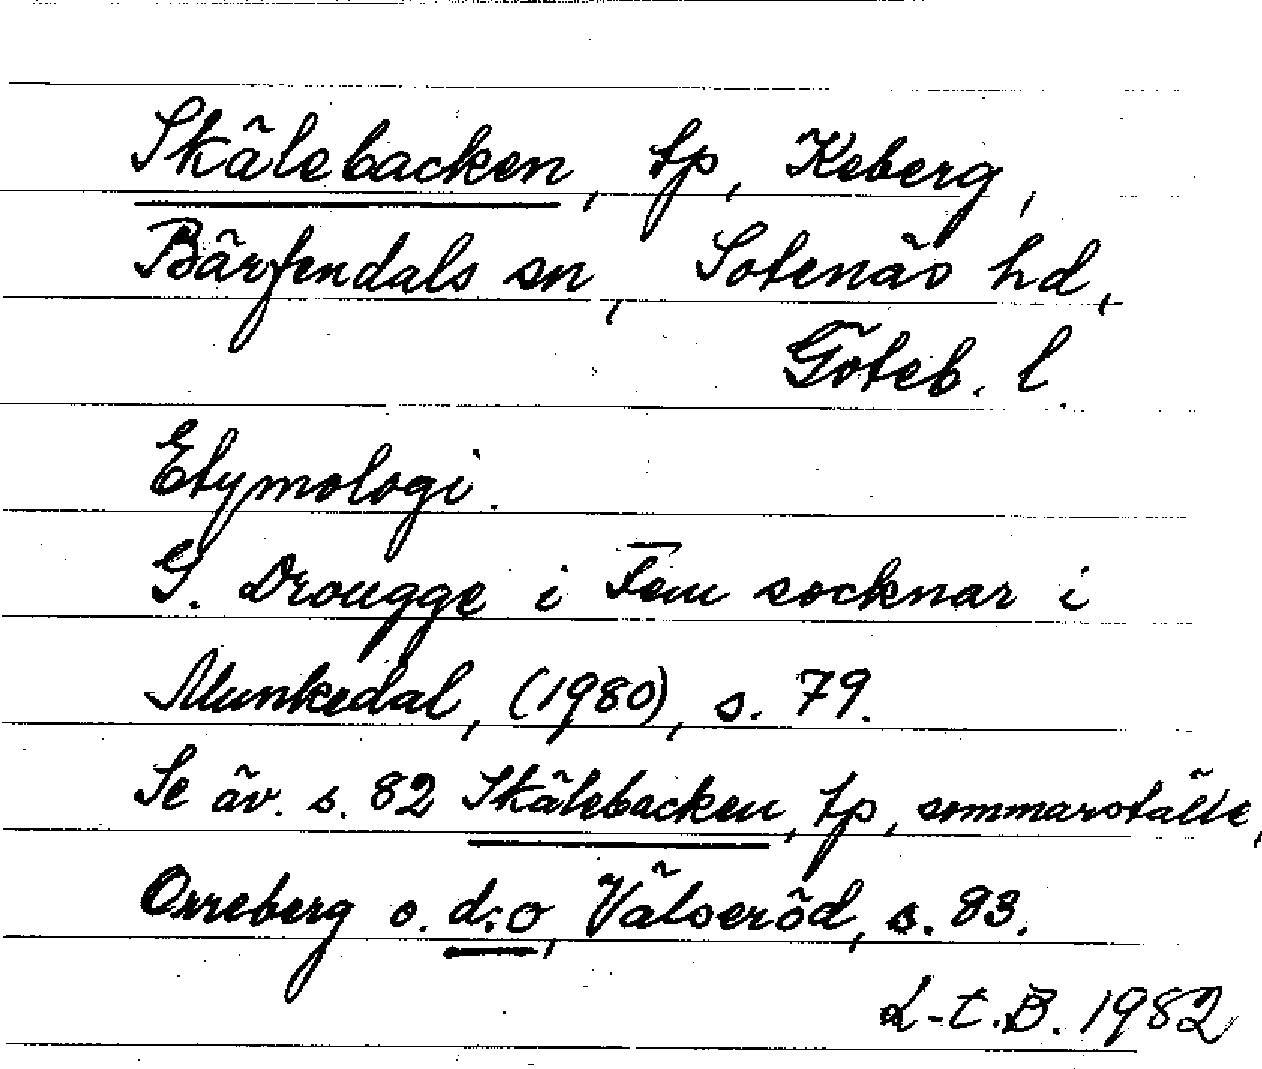 Skälebacken, tp, Keberg,
Bärfendals sn, Sotenäs hd,
Göteb. l.
Etymologi.
G. Drougge i Fem socknar i
Munkedal, (1980), s. 79.
Se äv. s. 82 Skälebacken, tp, sommarställe,
Orreberg o. d:o, Välseröd, s. 83.
L-t.B. 1982